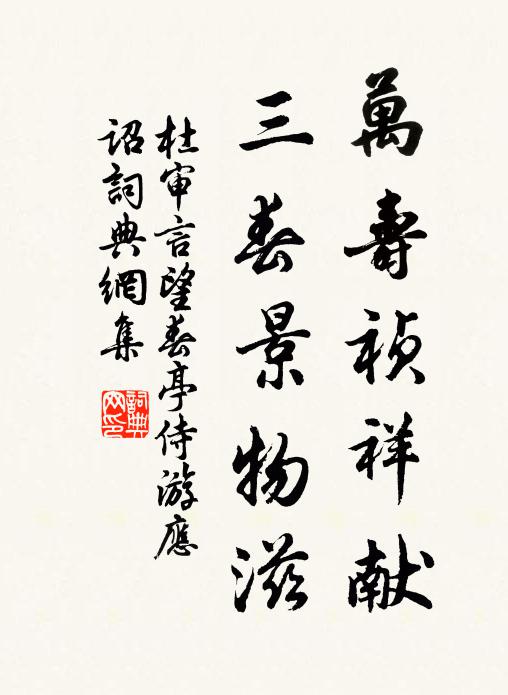 萬壽祯祥献
三春景物滋
杜审言望春亭侍游應
詔詞典網集
詞典
网印